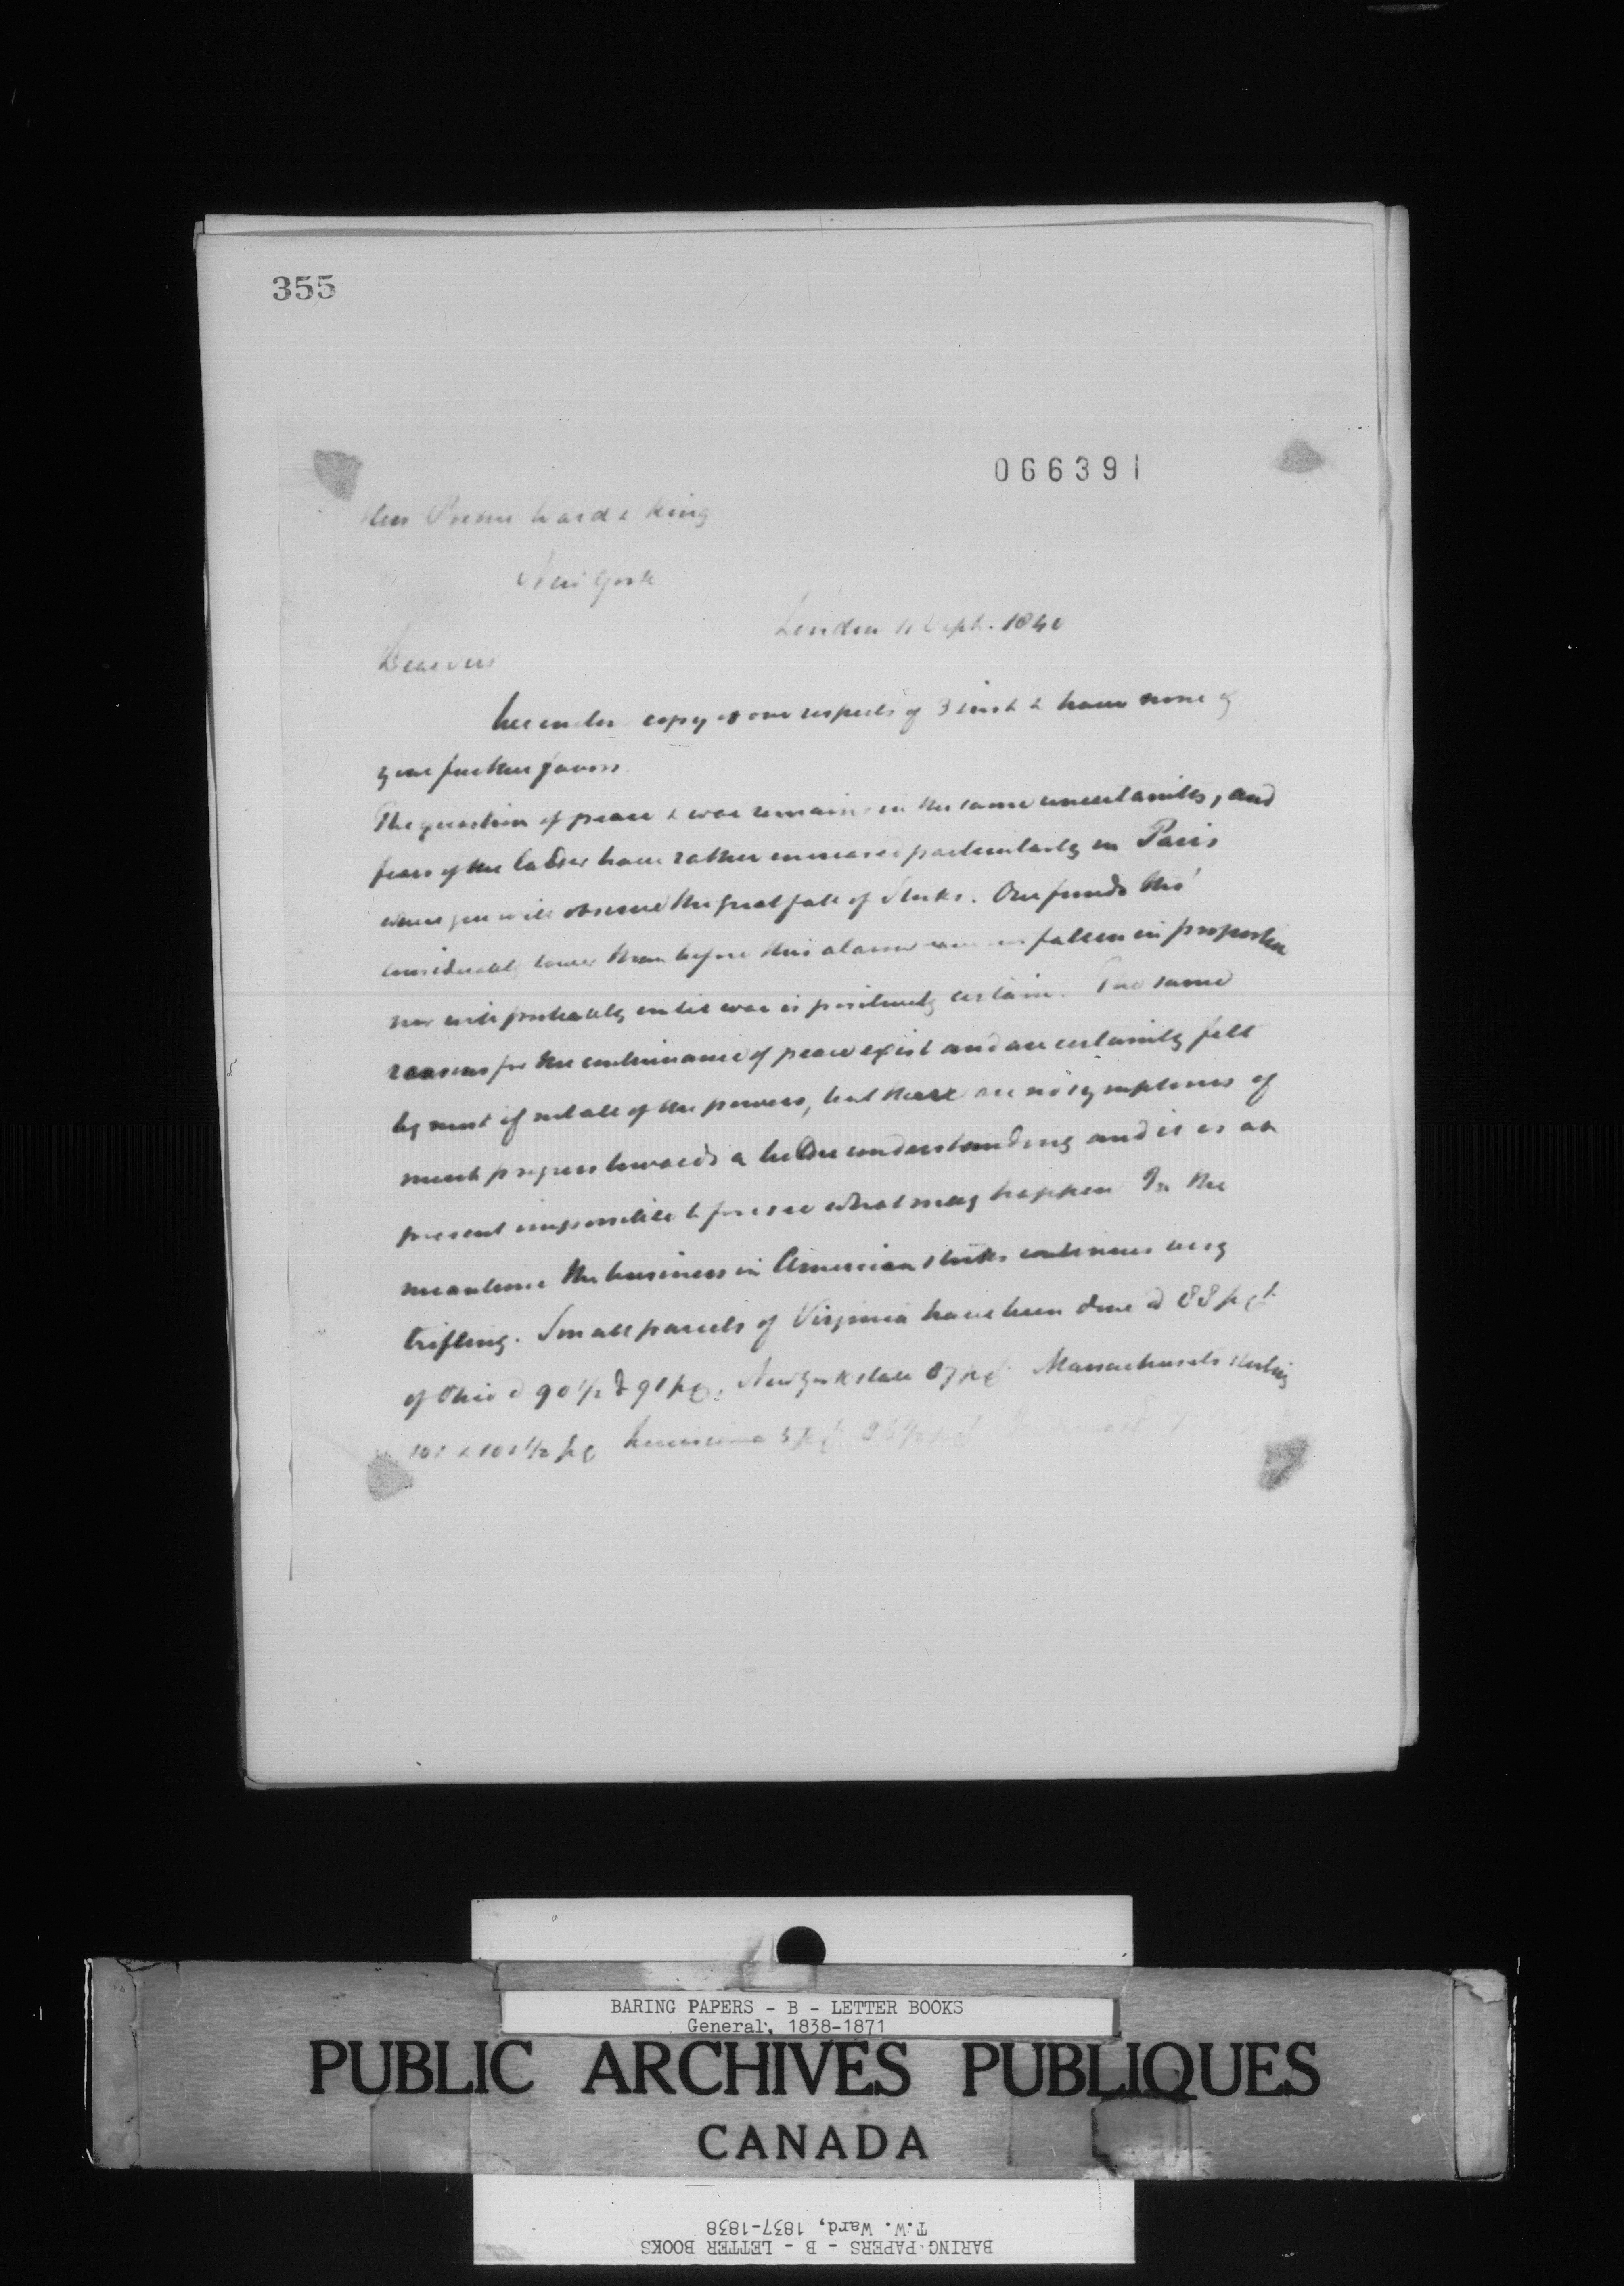 355
066391
Mess Prime Ward & King
New York
London 11 Sept. 1840
Dear Sirs
hereunder copy of our respects of 3 inst & have none of
your further favors.
The question of peace & war remains in the same uncertainty, and
fears of the latter have rather increased particularly in Paris
where you will observe the great fall of Stocks. Our funds tho'
considerably lower than before this alarm fallen in proportion
nor will probably until war is positively certain. The same
reasons for the continuance of peace exist and are certainly felt
by most if not all of the powers, but there are no symptoms of
much progress towards a better understanding and it is at
present impossible to foresee what may happen In the
meantime the business in American stocks continues very
trifling. Small parcels of Virginia have been done @ 88 p ct
of Ohio @ 90 1/2 & 91 p c, New York state 87 p ct Massachusets sterling
101 & 101 1/2 p c Louisiana 5 p ct
BARING PAPERS - B - LETTER BOOKS
General, 1838-1871
PUBLIC ARCHIVES PUBLIQUES
CANADA
BARING PAPERS - B - LETTER BOOKS
T.W. Ward, 1837-1838